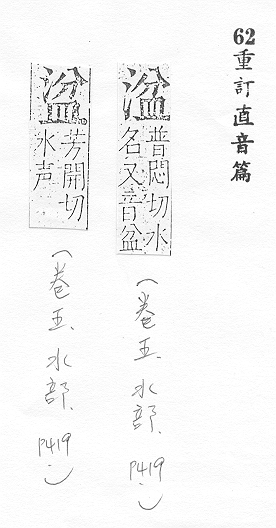 62重訂直音篇
湓普悶切水
名又音盆
(卷五.水部.P419.)
湓芳開切
水声
(卷五.水部.P419.)